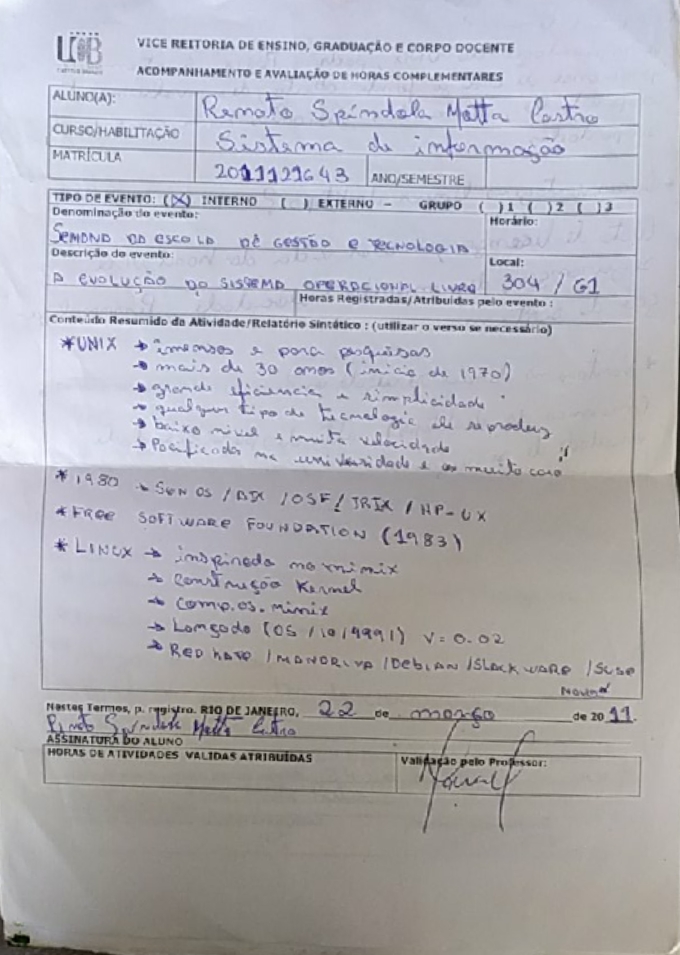 UCB
VICE REITORIA DE ENSINO, GRADUAÇÃO E CORPO DOCENTE
ACOMPANHAMENTO E AVALIAÇÃO DE HORAS COMPLEMENTARES
ALUNO(A): Renato Spíndola Motta Castro
CURSO/HABILITAÇÃO Sistema de informação
MATRÍCULA 2011121643 ANO/SEMESTRE
TIPO DE EVENTO: (X) INTERNO ( ) EXTERNO - GRUPO ( )1 ( )2 ( )3
Denominação do evento: Horário:
SEMANA DA ESCOLA DE GESTÃO E TECNOLOGIA
Descrição do evento: Local:
A EVOLUÇÃO DO SISTEMA OPERACIONAL LIVRE 304 / G1
Horas Registradas/Atribuídas pelo evento :
Conteúdo Resumido da Atividade/Relatório Sintético : (utilizar o verso se necessário)
* UNIX → imensos e para pesquisas
→ mais de 30 anos (inicio de 1970)
→ grande eficiencia e simplicidade
→ qualquer tipo de tecnologia ele
→ baixo nivel e muita velocidade
→ na universidade e muito caro
* 1980 → SUN OS / AIX / OSF / IRIX / HP-UX
* FREE SOFTWARE FOUNDATION (1983)
* LINUX → inspirado no minix
→ Construção Kernel
→ Comp.os.minix
→ Lançado (05/10/1991) V=0.02
→ RED HATE / MANDRIVA / DEBIAN / SLACKWARE / SUSE
Nestes Termos, p. registro. RIO DE JANEIRO, 22 de março de 2011.
Renato Spíndola Motta Castro
ASSINATURA DO ALUNO
HORAS DE ATIVIDADES VALIDAS ATRIBUÍDAS Validação pelo Professor: